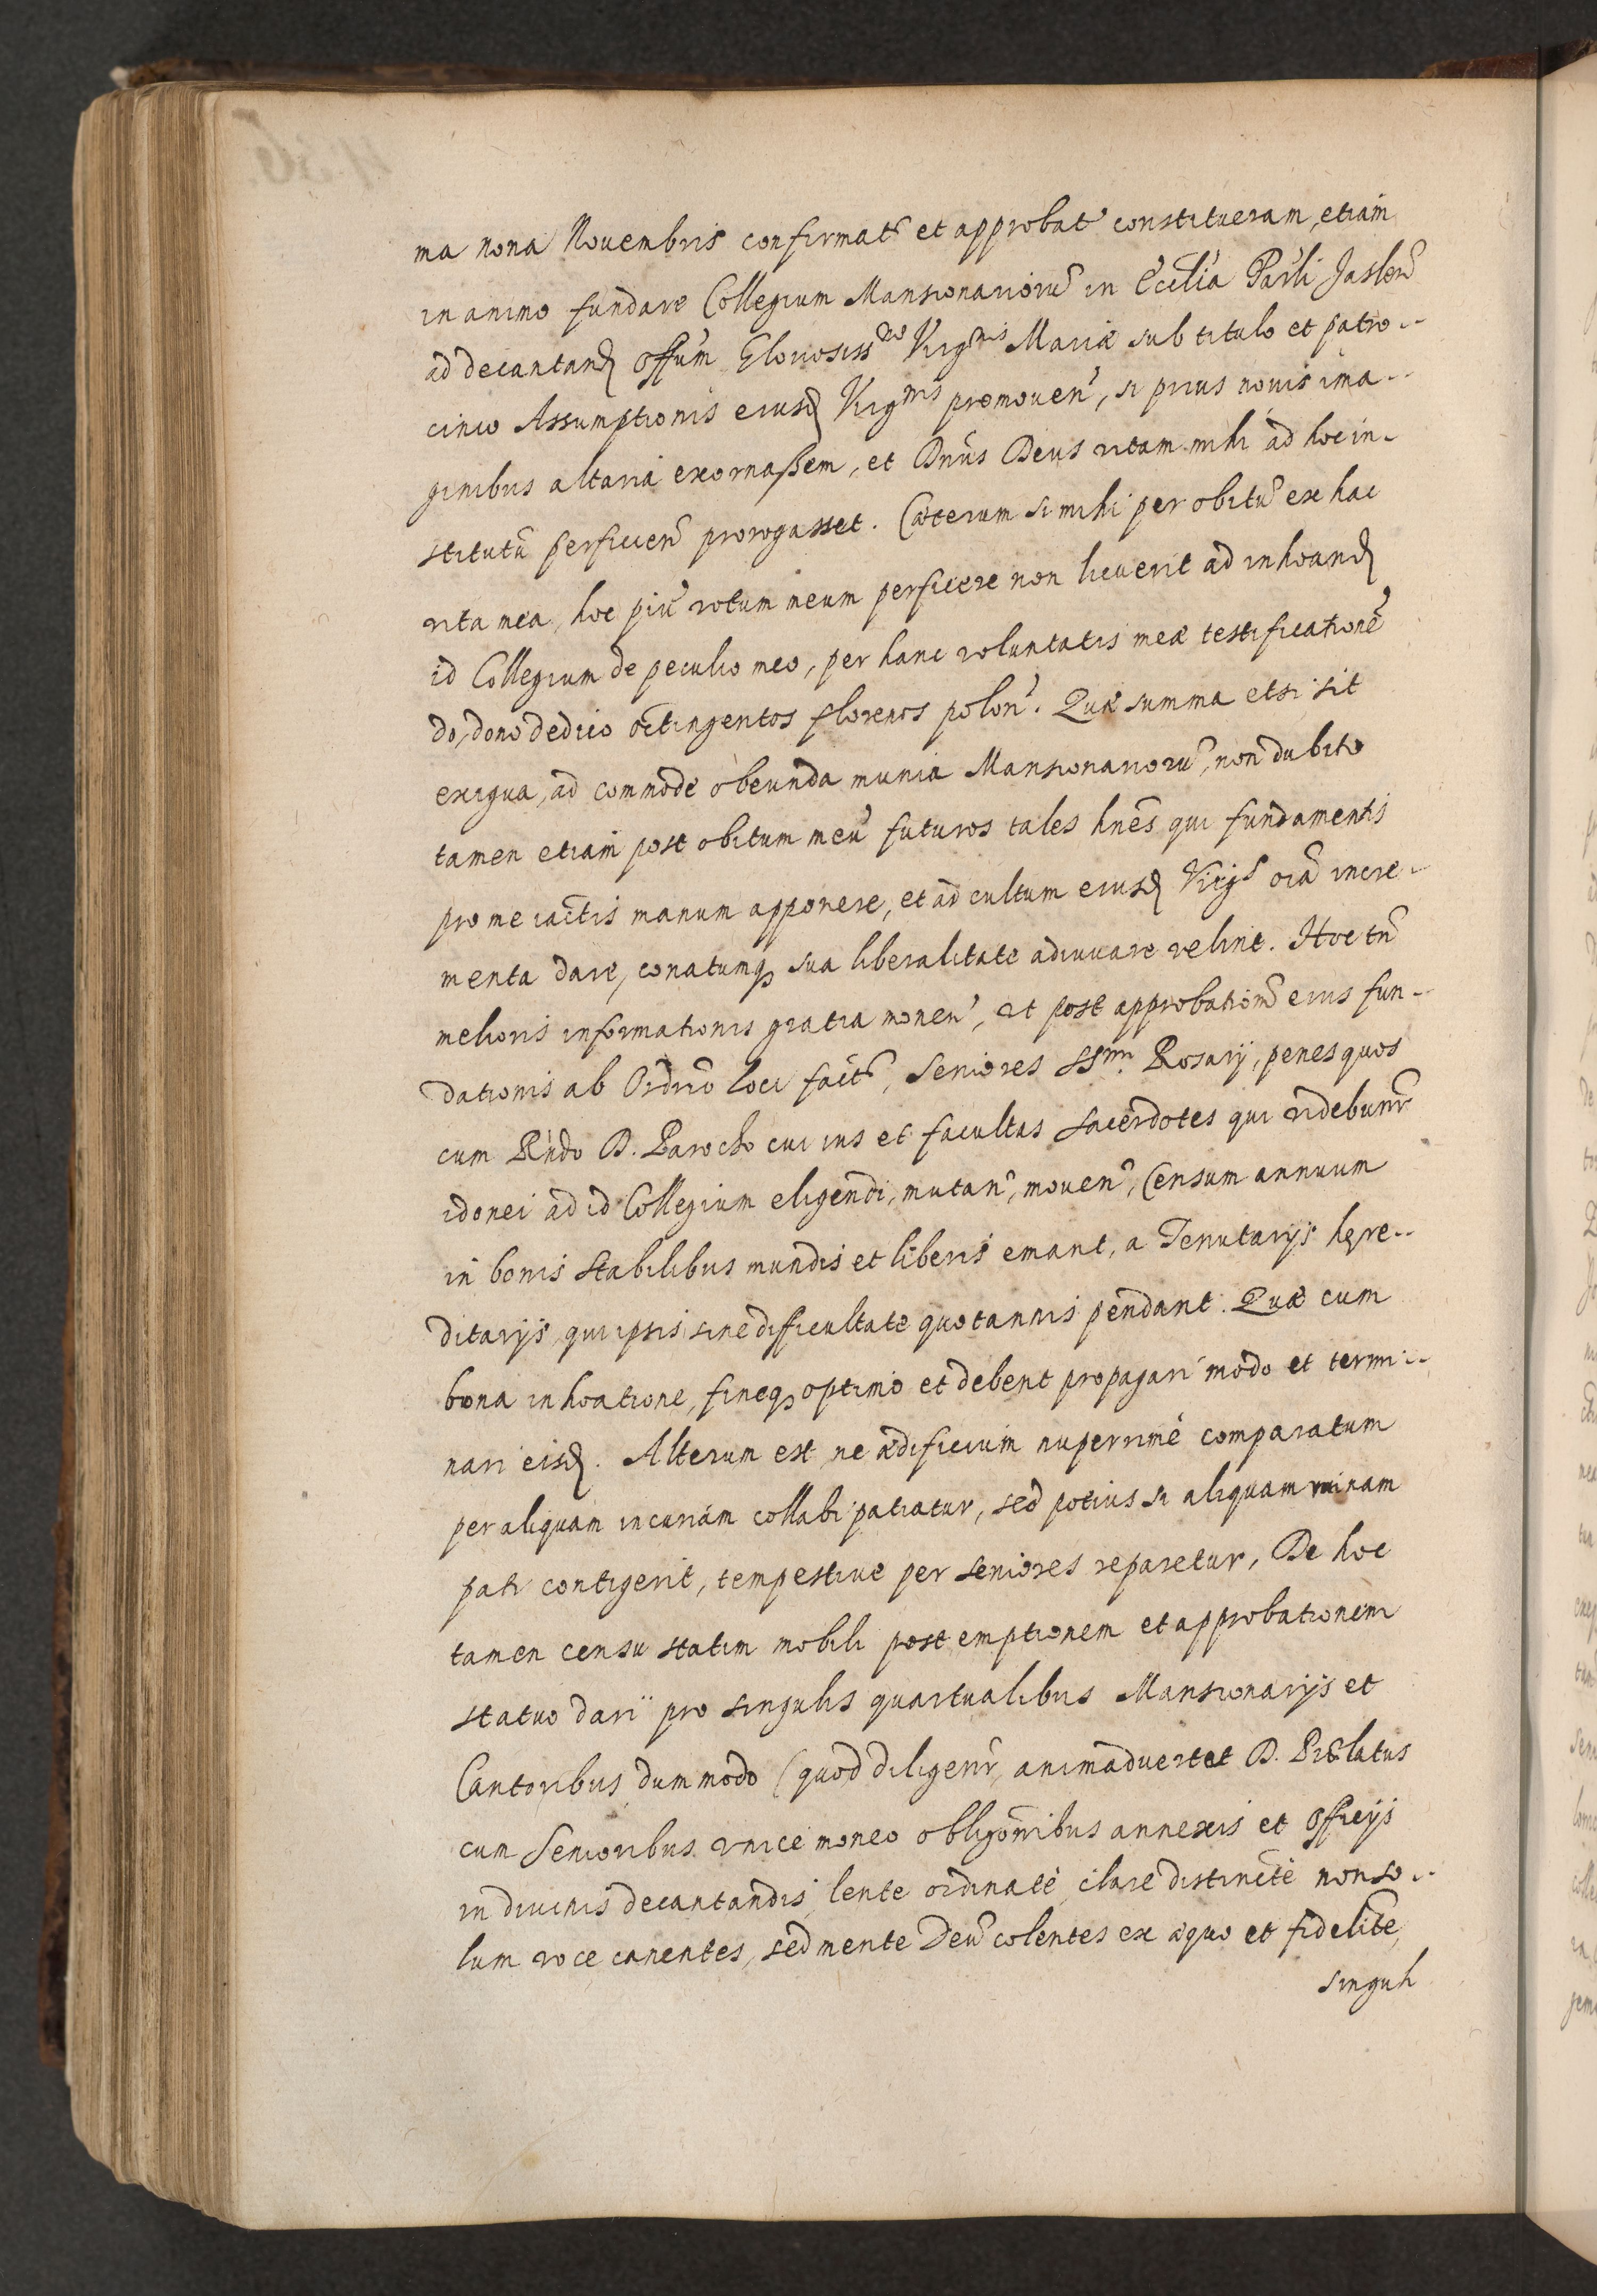 ma nona Nouembris confirmat̃ et approbat̃ constitueram, etiam
in animo fundare Collegium Mansionarioru᷉ in Ecc̃lia Par̃li Jaslen᷉
ad decantand̨ off̃um Gloriosiss^mæ Virg^nis Mariæ sub titulo et patro-
cinio Assumptionis eiusd̨ Virg^nis promouen̓, si prius nouis ima-
ginibus altaria exornaßem, et Dnũs Deus vitam mihi ad hoc in-
stitutũ perficien᷉ prorogasset. Cæterum si mihi per obitũ ex hac
vita mea, hoc piũ votum meum perficere non licuerit ad inhoand̨
id Collegium de peculio meo, per hanc voluntatis meæ testificationẽ
do, dono dedico octingentos florenos polon̓. Quæ summa etsi sit
exigua, ad commode obeunda munia Mansionarioru᷉, non dubito
tamen etiam post obitum meũ futuros tales hñes qui fundamentis
pro me iactis manum apponere, et ad cultum eiusd̨ Virg^s oiã incre-
menta dare, conatumq̨ sua liberalitate adiuuare velint. Hoc tñ
melioris informationis gratia monen̓, ut post approbationẽ eius fun-
dationis ab Ordrĩo loci fact̃, Seniores SS^mi. Rosarij, penes quos
cum Rñdo D. Parocho cui ius et facultas sacerdotes qui videbunr̃
idonei ad id Collegium eligendi, mutan᷉, mouen᷉, Censum annuum
in bonis stabilibus mundis et liberis emant, a Tenutarijs hęre-
ditarijs, qui ipsis sine difficultate quotannis pendant. Quæ cum
bona inhoatione, fineq̨ optimo et debent propagari modo et termi-
nari eisd̨. Alterum est ne ædificium nuperrimè comparatum
per aliquam incuriam collabi patiatur, sed potius si aliquam ruinam
pati contigerit, tempestiue per seniores reparetur, De hoc
tamen censu statim mobili post emptionem et approbationem
statuo dari pro singulis quartualibus Mansionarijs et
Cantoribus dummodo (quod diligenr̃ animaduertet D. Prælatus
cum Senioribus vnice moneo obligoñibus annexis et officijs
in diuinis decantandis, lente ordinatè, clare distinctè non so-
lum voce canentes, sed mente Deũ colentes ex æquo et fidelitẽ
singuli